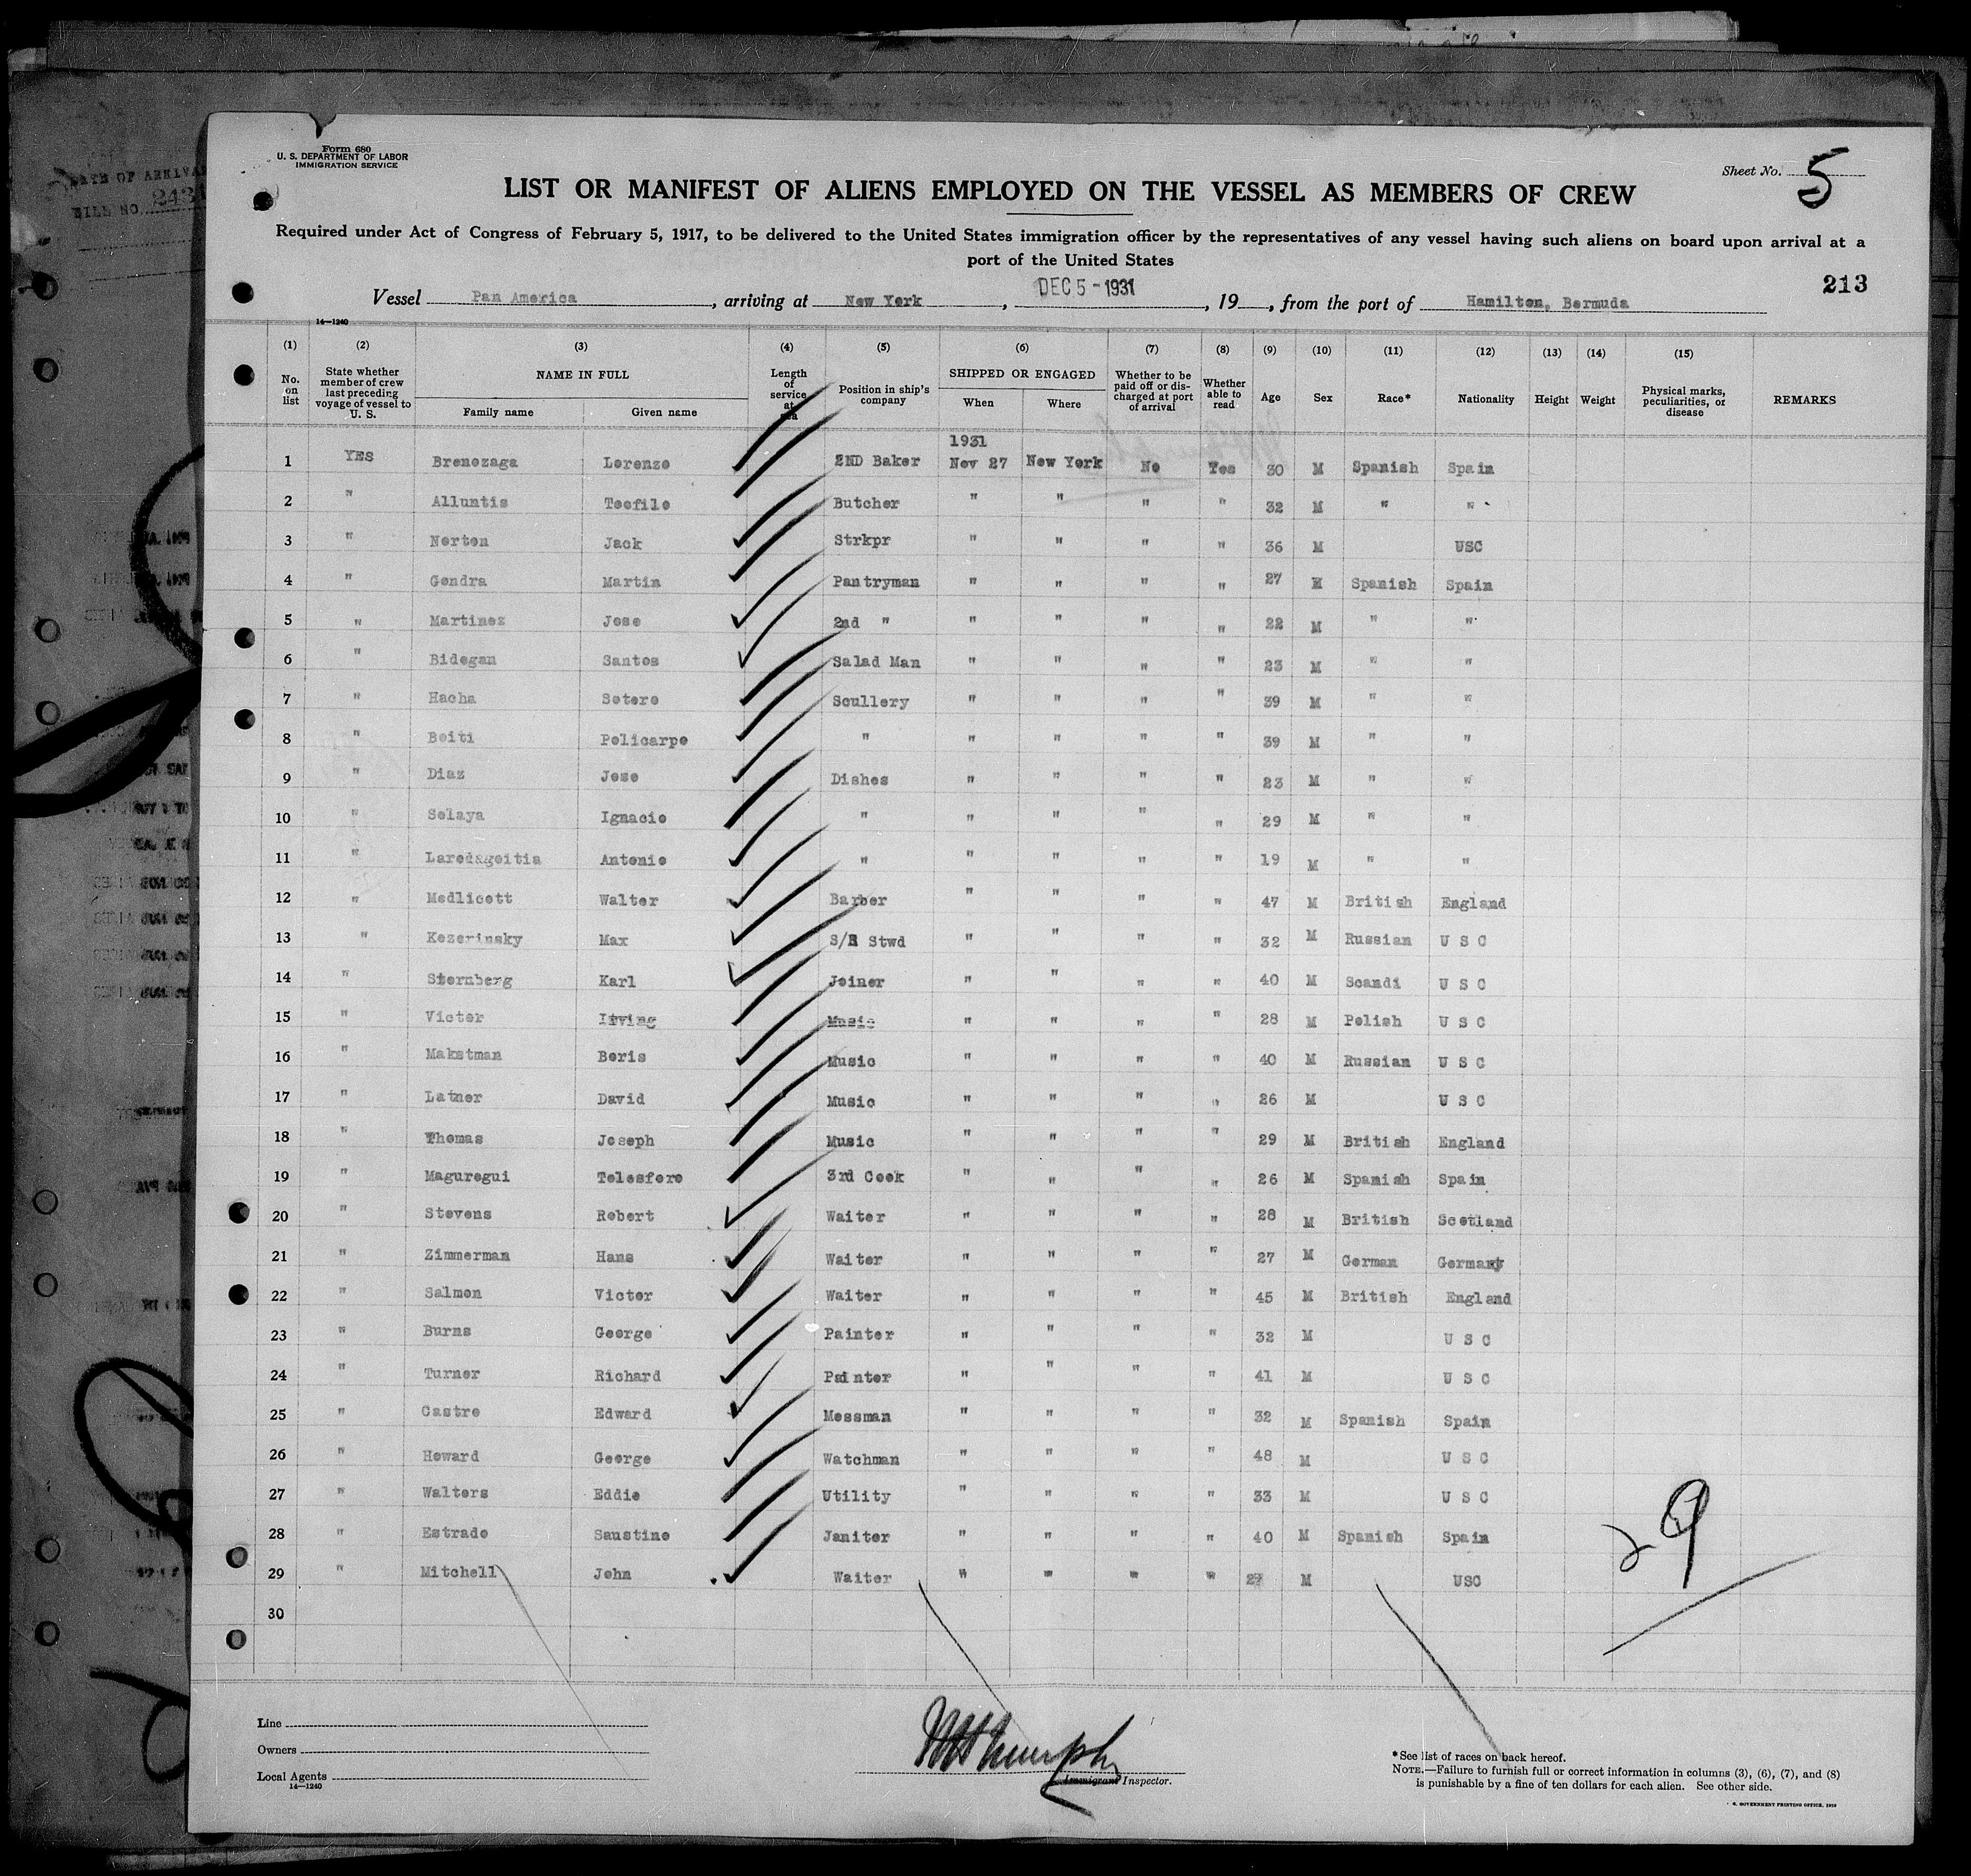 Form 680
U. S. DEPARTMENT OF LABOR
IMMIGRATION SERVICE
Sheet No. 5
LIST OR MANIFEST OF ALIENS EMPLOYED ON THE VESSEL AS MEMBERS OF CREW
Required under Act of Congress of February 5, 1917, to be delivered to the United States immigration officer by the representatives of any vessel having such aliens on board upon arrival at a
port of the United States
213
Vessel Pan America, arriving at New York, DEC 5 - 1931, 19, from the port of Hamilton, Bermuda
14—1240
(1) (2) (3) (4) (5) (6) (7) (8) (9) (10) (11) (12) (13) (14) (15)
No. on list State whether member of crew last preceding voyage of vessel to U. S. NAME IN FULL Family name Given name Length of service at sea Position in ship's company SHIPPED OR ENGAGED When Where Whether to be paid off or discharged at port of arrival Whether able to read Age Sex Race* Nationality Height Weight Physical marks, peculiarities, or disease REMARKS
1931
1 YES Brenozaga Lorenzo 2ND Baker Nov 27 New York No Yes 30 M Spanish Spain
2 " Alluntis Teofilo Butcher " " " " 32 M " "
3 " Norton Jack Strkpr " " " " 36 M USC
4 " Gondra Martin Pantryman " " " " 27 M Spanish Spain
5 " Martinez Jose 2nd " " " " " 22 M " "
6 " Bidegan Santos Salad Man " " " " 23 M " "
7 " Hacha Sotero Scullery " " " " 39 M " "
8 " Boiti Policarpo " " " " " 39 M " "
9 " Diaz Jose Dishes " " " " 23 M " "
10 " Solaya Ignacio " " " " " 29 M " "
11 " Laredageitia Antonio " " " " " 19 M " "
12 " Medlicott Walter Barber " " " " 47 M British England
13 " Kozorinsky Max S/R Stwd " " " " 32 M Russian U S C
14 " Sternberg Karl Joiner " " " " 40 M Scandi U S C
15 " Victor Irving Music " " " " 28 M Polish U S C
16 " Makstman Boris Music " " " " 40 M Russian U S C
17 " Latner David Music " " " " 26 M U S C
18 " Thomas Joseph Music " " " " 29 M British England
19 " Maguregui Telesforo 3rd Cook " " " " 26 M Spanish Spain
20 " Stevens Robert Waiter " " " " 28 M British Scotland
21 " Zimmerman Hans Waiter " " " " 27 M German Germany
22 " Salmon Victor Waiter " " " " 45 M British England
23 " Burns George Painter " " " " 32 M U S C
24 " Turner Richard Painter " " " " 41 M U S C
25 " Castro Edward Messman " " " " 32 M Spanish Spain
26 " Howard George Watchman " " " " 48 M U S C
27 " Walters Eddie Utility " " " " 33 M U S C
28 " Estrado Saustino Janitor " " " " 40 M Spanish Spain
29 " Mitchell John Waiter " " " " M USC
30
29
Line
Owners
Local Agents
14—1240
Immigrant Inspector.
*See list of races on back hereof.
NOTE.—Failure to furnish full or correct information in columns (3), (6), (7), and (8)
is punishable by a fine of ten dollars for each alien. See other side.